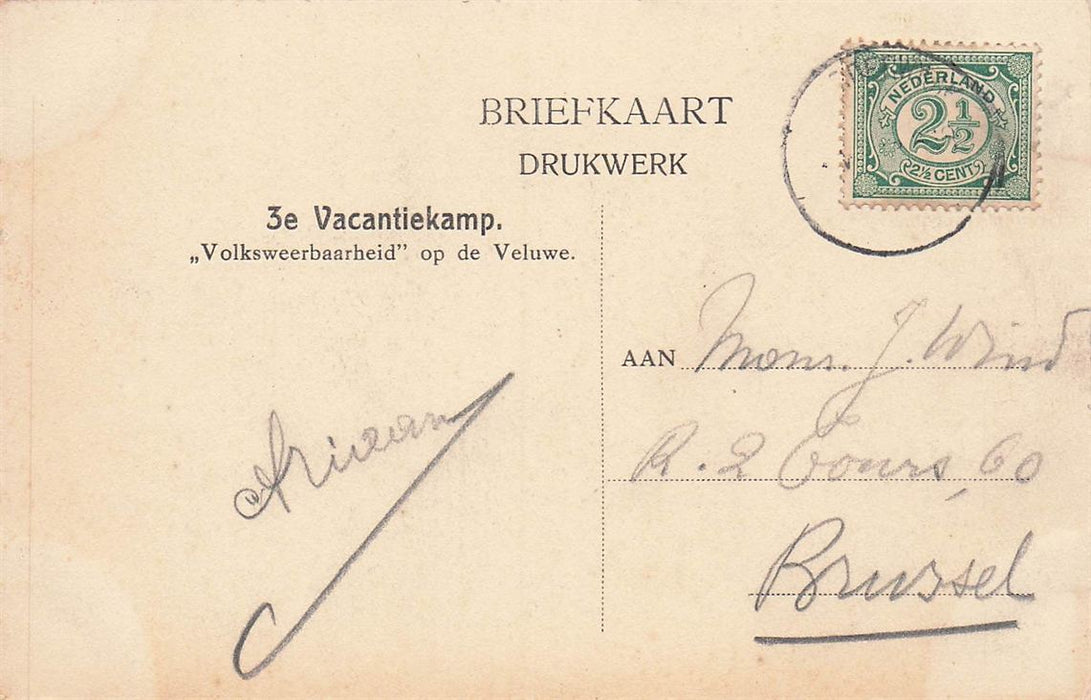 BRIEFKAART
DRUKWERK
3e Vacantiekamp.
„Volksweerbaarheid” op de Veluwe.
NEDERLAND
2½
2½ CENT
AAN Mons. J. Wind
R. 2 Tours, 60
Brussel